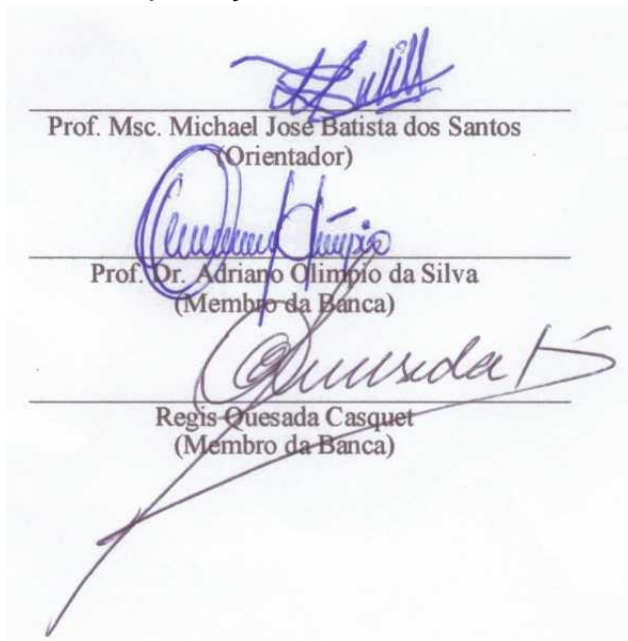 Prof. Msc. Michael José Batista dos Santos
(Orientador)
Olímpio
Prof. Dr. Adriano Olimpio da Silva
(Membro da Banca)
Quesada
Regis Quesada Casquet
(Membro da Banca)